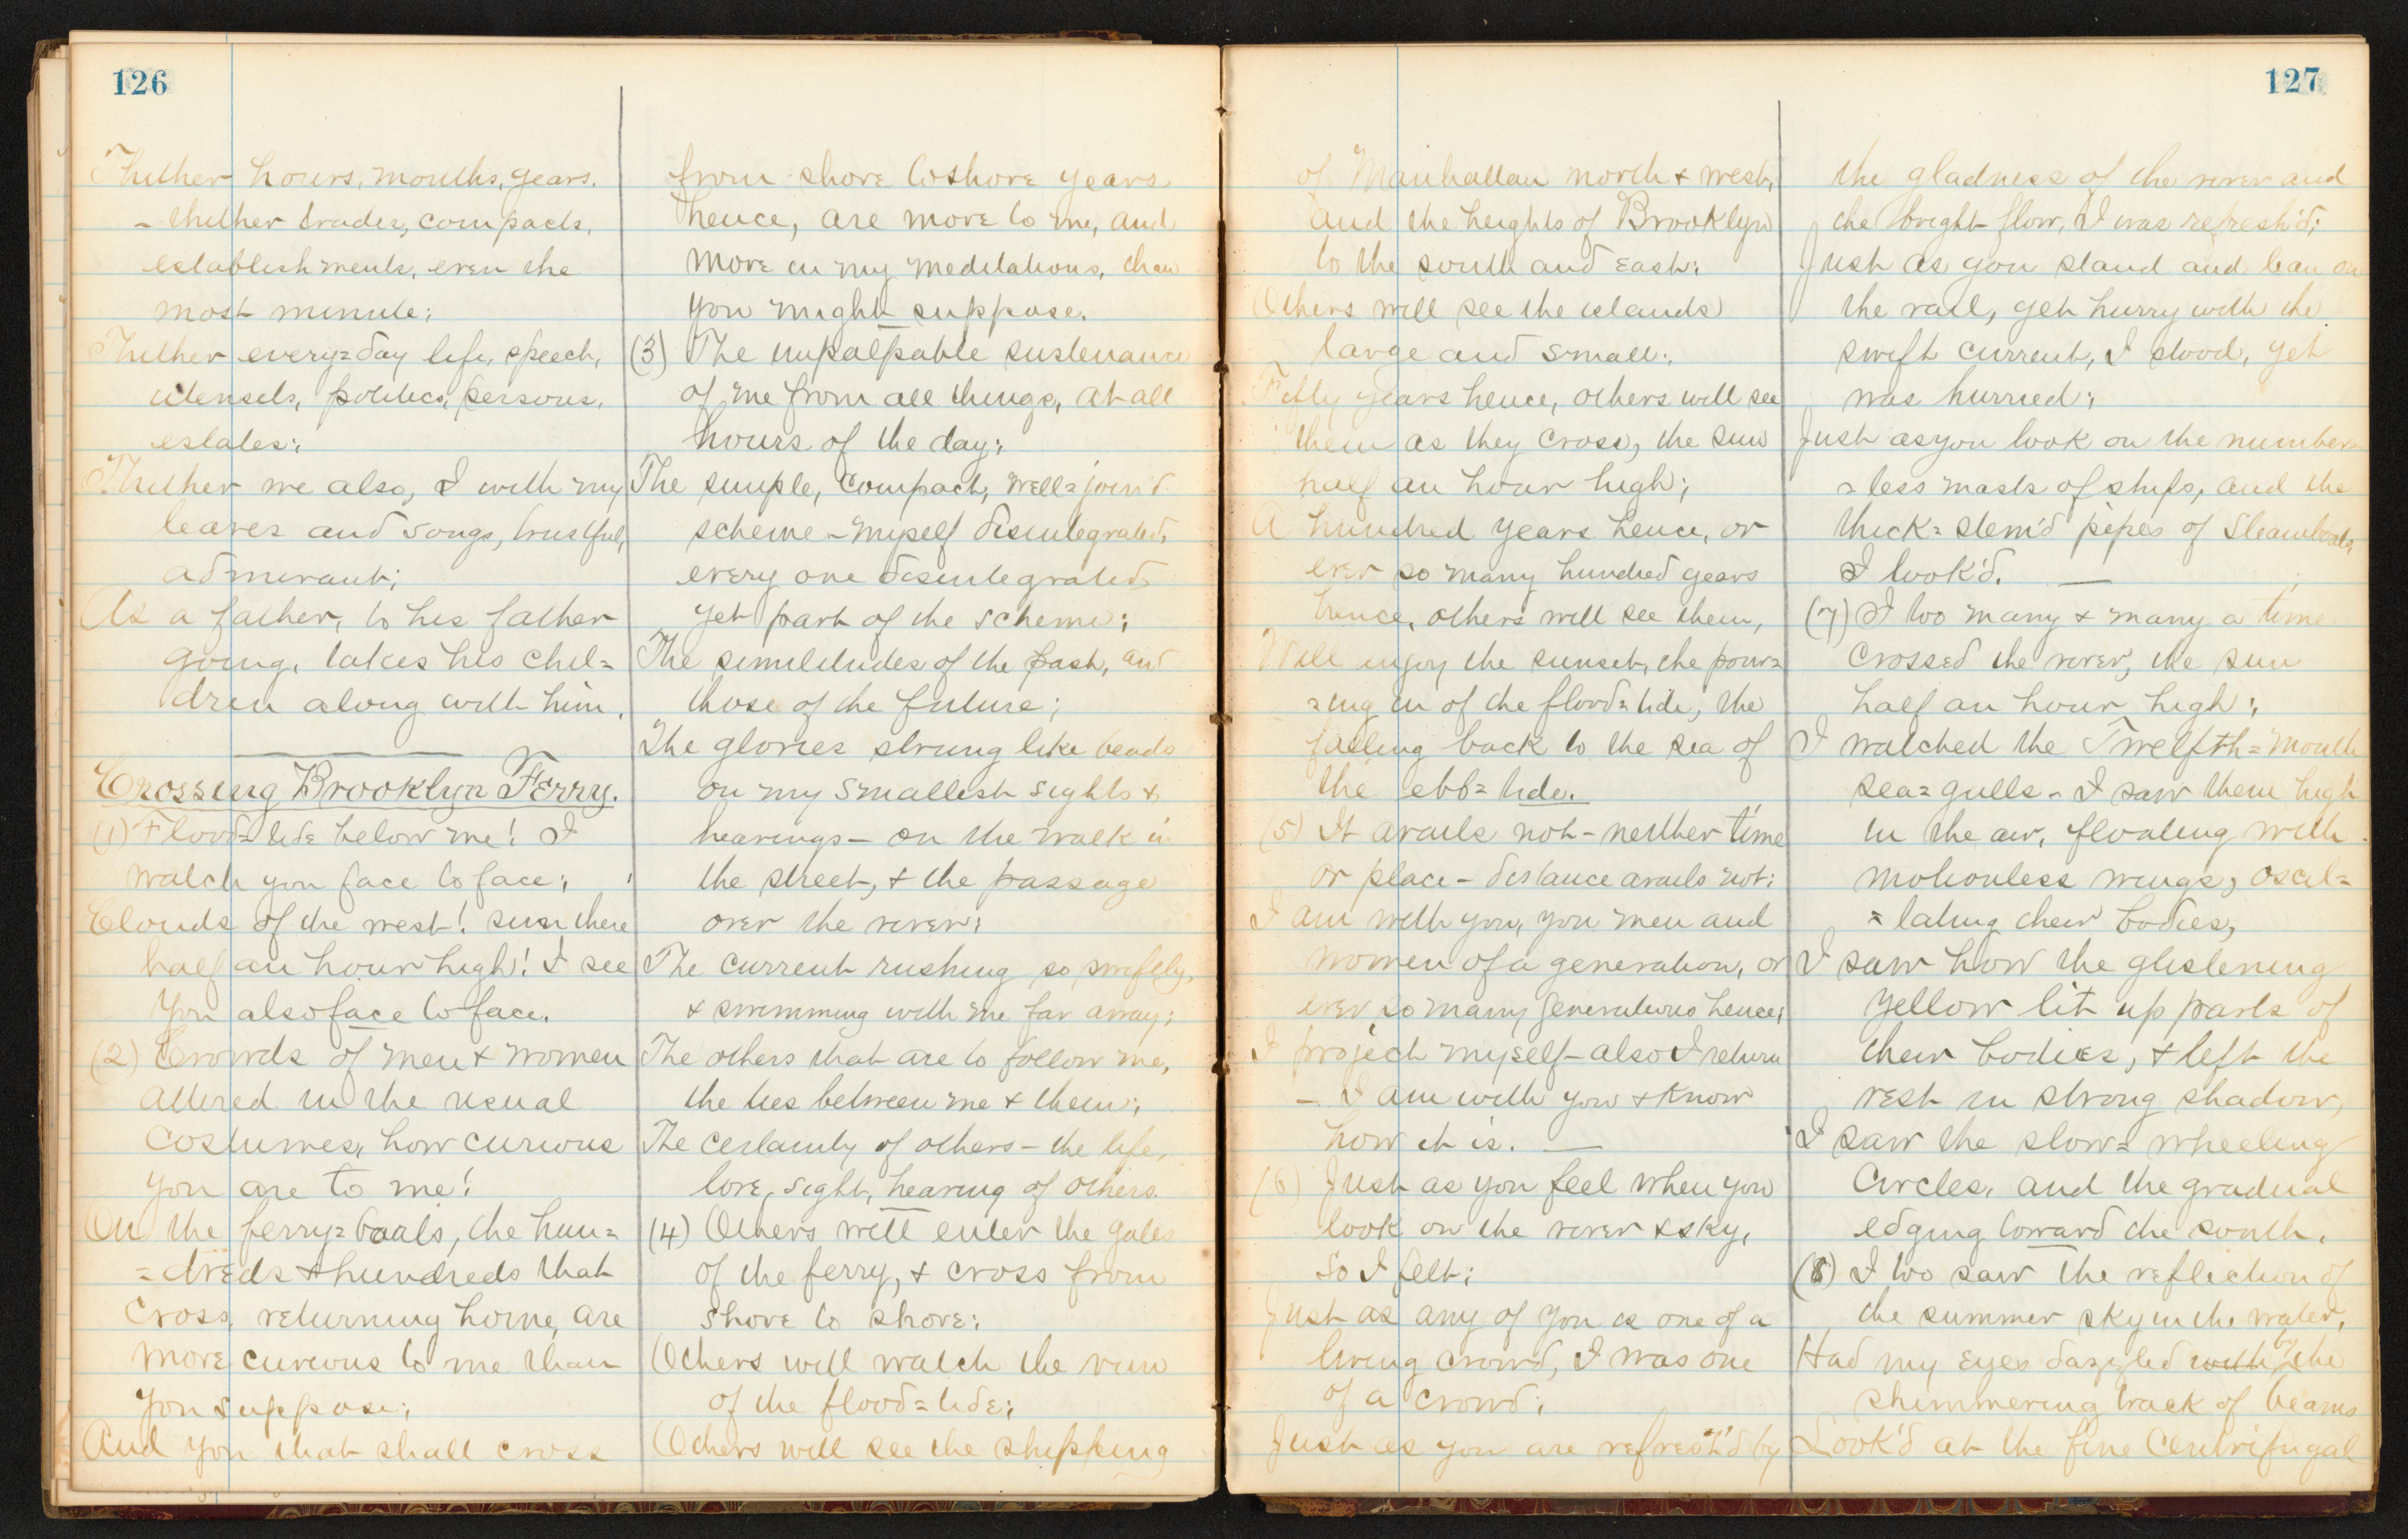 126
Thither hours, months, years,
- thither trades, compacts,
establishments, even the
most minute;
Thither every=day life, speech,
utensils, politics, persons,
estates;
Thither we also, I with my
leaves and songs, trustful,
admirant;
As a father, to his father
going, takes his chil=
dren along with him.
Crossing Brooklyn Ferry.
(1) Flood=tide below me! I
watch you face to face;
Clouds of the west! sun there
half an hour high! I see
you also face to face.
(2) Crowds of men & women
attired in the usual
costumes, how curious
you are to me!
On the ferry=boats, the hun=
=dreds & hundreds that
cross, returning home, are
more curious to me than
you suppose;
And you that shall cross
from shore to shore years
hence, are more to me, and
more in my meditations, than
you might suppose.
(3) The impalpable sustenance
of me from all things, at all
hours of the day;
The simple, compact, well=join'd
scheme - myself disintegrated,
every one disintegrated
yet part of the scheme;
The similitudes of the past, and
those of the future;
The glories strung like beads
on my smallest sights &
hearings - on the walk in
the street, & the passage
over the river;
The current rushing so swiftly,
& swimming with me far away;
The others that are to follow me,
the ties between me & them;
The certainty of others - the life,
love, sight, hearing of others.
(4) Others will enter the gates
of the ferry, & cross from
shore to shore;
Others will watch the run
of the flood=tide;
Others will see the shipping
127
of Manhattan north & west,
and the heights of Brooklyn
to the south and east;
Others will see the islands
large and small;
Fifty years hence, others will see
them as they cross, the sun
half an hour high;
A hundred years hence, or
ever so many hundred years
hence, others will see them,
Will enjoy the sunset, the pour=
=ing in of the flood=tide, the
falling back to the sea of
the ebb=tide.
(5) It avails not - neither time
or place - distance avails not;
I am with you, you men and
women of a generation, or
ever so many generations hence;
I project myself - also I return
- I am with you & know
how it is.
(6) Just as you feel when you
look on the river & sky,
so I felt;
Just as any of you is one of a
living crowd, I was one
of a crowd;
Just as you are refresh'd by
the gladness of the river and
the bright flow, I was refresh'd;
Just as you stand and lean on
the rail, yet hurry with the
swift current, I stood, yet
was hurried;
Just as you look on the number=
=less masts of ships, and the
thick=stem'd pipes of steamboats,
I look'd.
(7) I too many & many a time
crossed the river, the sun
half an hour high;
I watched the Twelfth=month
sea=gulls - I saw them high
in the air, floating with
motionless wings, oscil=
=lating their bodies,
I saw how the glistening
yellow lit up parts of
their bodies, & left the
rest in strong shadow,
I saw the slow=wheeling
circles, and the gradual
edging toward the south.
(8) I too saw the reflection of
the summer sky in the water,
Had my eyes dazzled with by the
shimmering track of beams
Look'd at the fine centrifugal